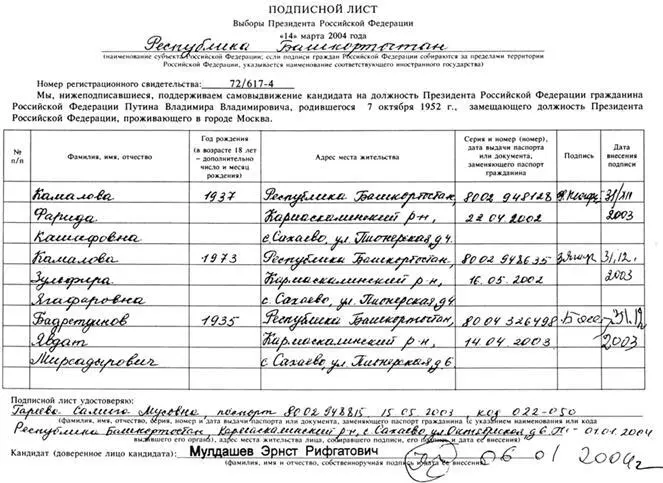 ПОДПИСНОЙ ЛИСТ
Выборы Президента Российской Федерации
«14» марта 2004 года
Республика Башкортостан
(наименование субъекта Российской Федерации; если подписи граждан Российской Федерации собираются за пределами территории
Российской Федерации, указывается наименование соответствующего иностранного государства)
Номер регистрационного свидетельства: 72/617-4
Мы, нижеподписавшиеся, поддерживаем самовыдвижение кандидата на должность Президента Российской Федерации гражданина
Российской Федерации Путина Владимира Владимировича, родившегося 7 октября 1952 г., замещающего должность Президента
Российской Федерации, проживающего в городе Москва.
№ п/п Фамилия, имя, отчество Год рождения (в возрасте 18 лет – дополнительно число и месяц рождения) Адрес места жительства Серия и номер (номер), дата выдачи паспорта или документа, заменяющего паспорт гражданина Подпись Дата внесения подписи
Камалова 1937 Республика Башкортостан, 8002 948128 31/XII
Фарида Кармаскалинский р-н, 22 04 2002 2003
Кашифовна с. Сахаево, ул. Пионерская д 4.
Камалова 1973 Республика Башкортостан, 8002 948635 31.12.
Зульфира Кармаскалинский р-н, 16.05.2002 2003
Ягафаровна с. Сахаево, ул. Пионерская, д 4
Бадретдинов 1935 Республика Башкортостан, 8004 326498 31.12
Явдат Кармаскалинский р-н, 14 04 2003. 2003
Мирсадырович с. Сахаево, ул. Пионерская д 6.
Подписной лист удостоверяю:
Гареева Салига Мусовна, паспорт 8002 948815, 15.05.2003 код 022-050
(фамилия, имя, отчество, серия, номер и дата выдачи паспорта или документа, заменяющего паспорт гражданина (с указанием наименования или кода
Республика Башкортостан, Кармаскалинский р-н, с. Сахаево, ул. Октябрьская д 6. 01.01.2004
выдавшего его органа), адрес места жительства лица, собиравшего подписи, его подпись и дата ее внесения)
Кандидат (доверенное лицо кандидата): Мулдашев Эрнст Рифгатович 06 01 2004 г
(фамилия, имя и отчество, собственноручная подпись и дата ее внесения)